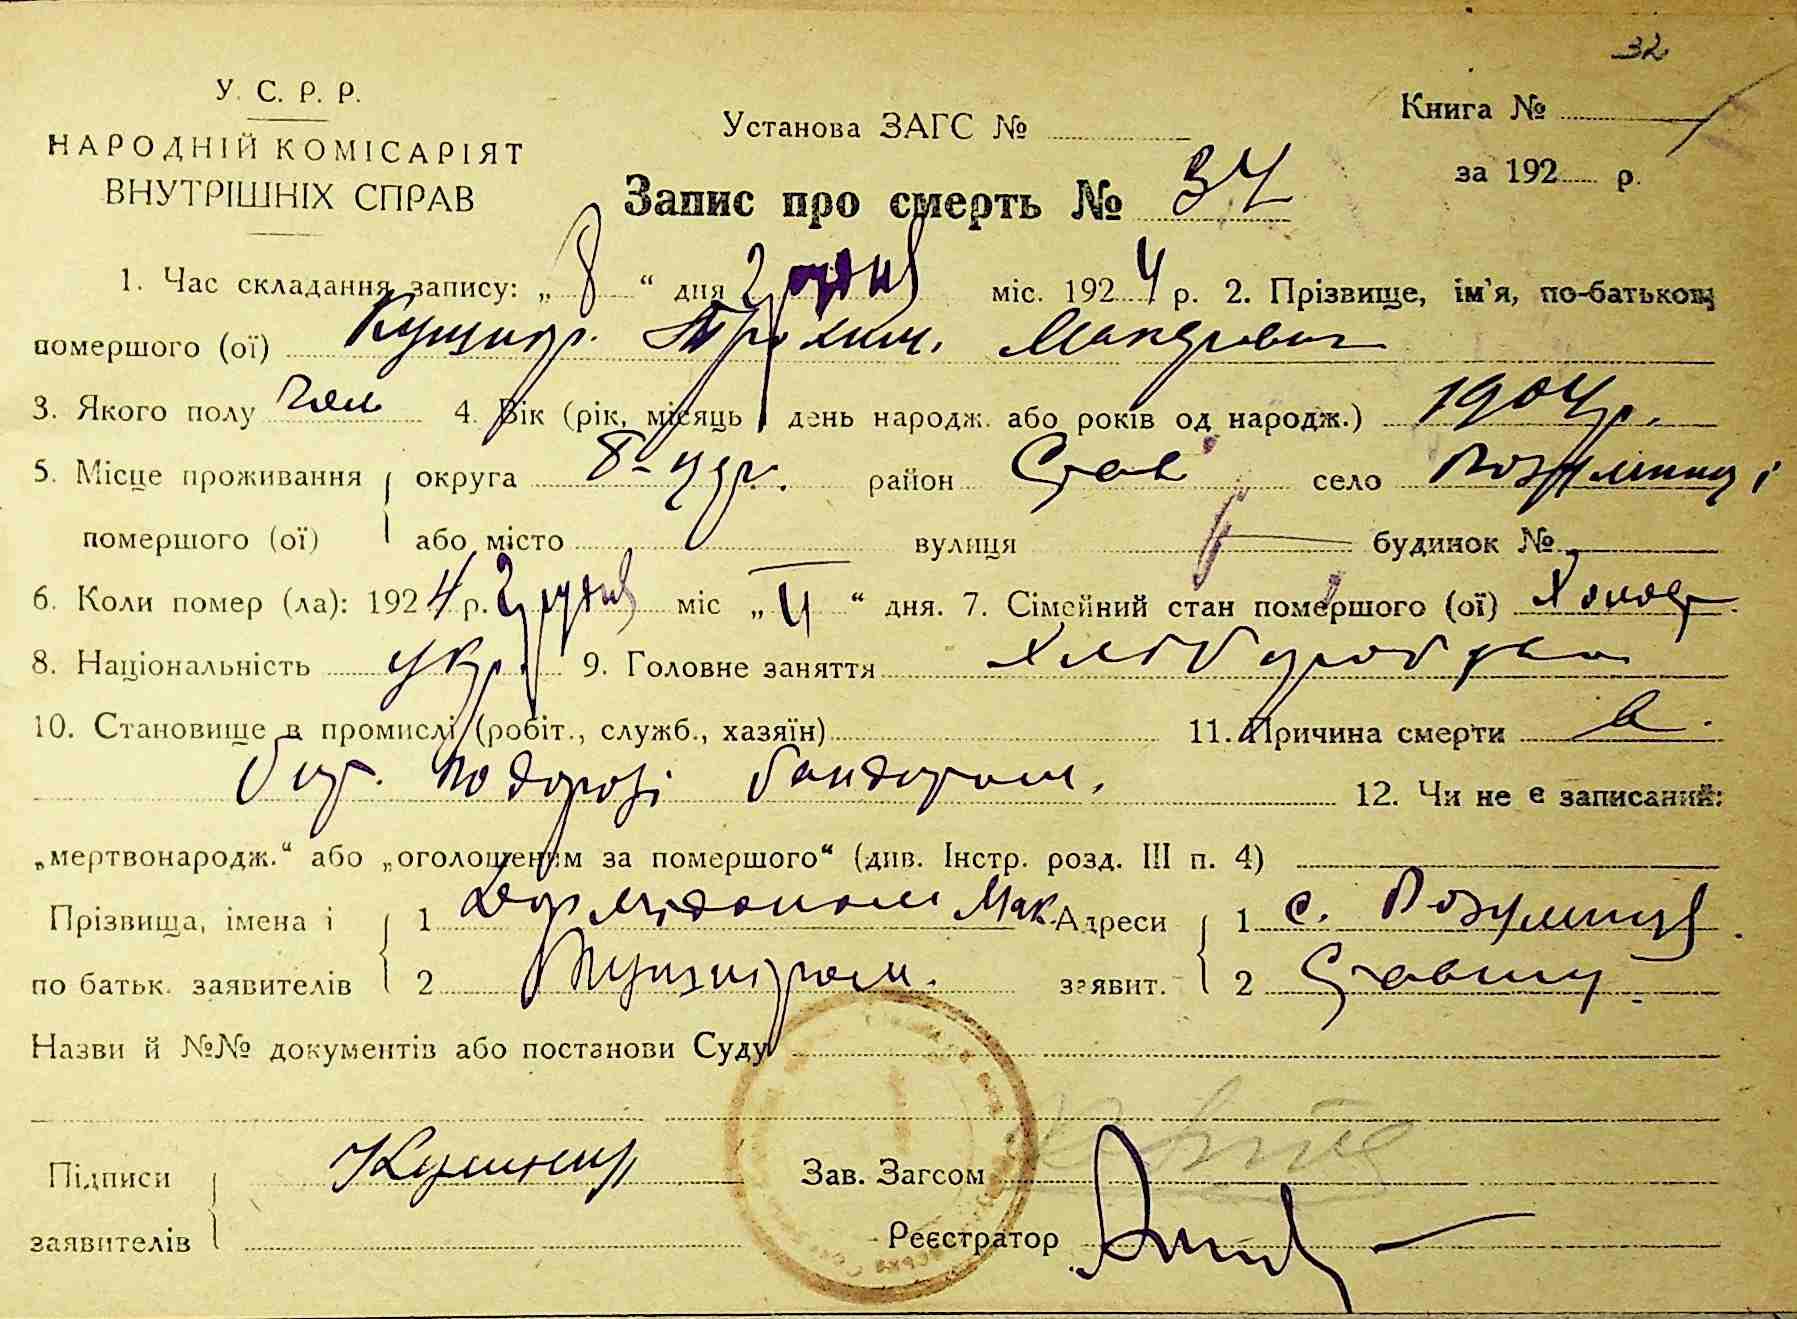 32
У. С. Р. Р.
НАРОДНІЙ КОМІСАРІЯТ
ВНУТРІШНІХ СПРАВ
Установа ЗАГС №
Книга №
за 192 р.
Запис про смерть № 34
1. Час складання запису: „8“ дня Грудня міс. 1924 р. 2. Прізвище, ім'я, по-батькові
помершого (ої) Кушнір. Трохим. Макарович
3. Якого полу чол 4. Вік (рік, місяць і день народж. або років од народж.) 1904 р.
5. Місце проживання округа Б-Цер. район Став село Розумниці
помершого (ої) або місто вулиця будинок №
6. Коли помер (ла): 1924 р. Грудня міс „4“ дня. 7. Сімейний стан помершого (ої) Холост
8. Національність укр. 9. Головне заняття Хліборобство
10. Становище в промислі (робіт., служб., хазяїн) 11. Причина смерти
бит. по дорозі бандитами. 12. Чи не є записаний:
„мертвонародж.“ або „оголошеним за помершого“ (див. Інстр. розд. III п. 4)
Прізвища, імена і 1 Мак. Адреси 1 с. Розумниця
по батьк. заявителів 2 Кушніром. заявит. 2 Ставищ
Назви й №№ документів або постанови Суду
Підписи Кушнир Зав. Загсом
заявителів Реєстратор